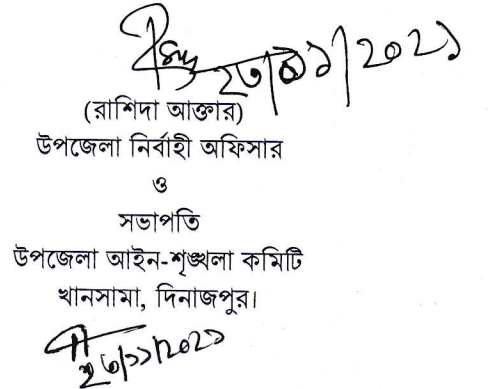 ২৩/১১/২০২১
(রাশিদা আক্তার)
উপজেলা নির্বাহী অফিসার
ও
সভাপতি
উপজেলা আইন-শৃঙ্খলা কমিটি
খানসামা, দিনাজপুর।
২৩/১১/২০২১